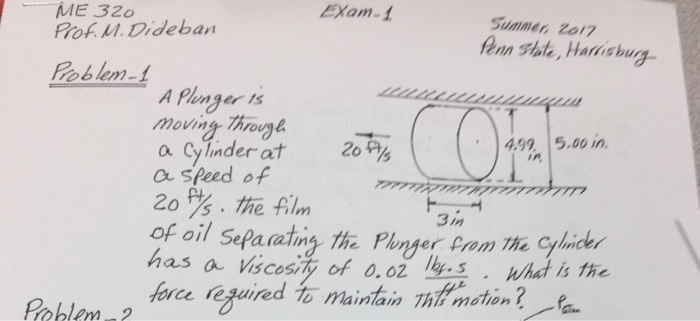 ME 320 Exam-1 Summer, 2017
Prof. M. Dideban Penn State, Harrisburg
Problem-1
A Plunger is
moving through
a Cylinder at
a speed of
20 ft/s. the film
20 ft/s
4.99 in.
5.00 in.
3 in
of oil separating the Plunger from the cylinder
has a viscosity of 0.02 lbf.s/ft². What is the
force required to maintain this motion?
Problem-2